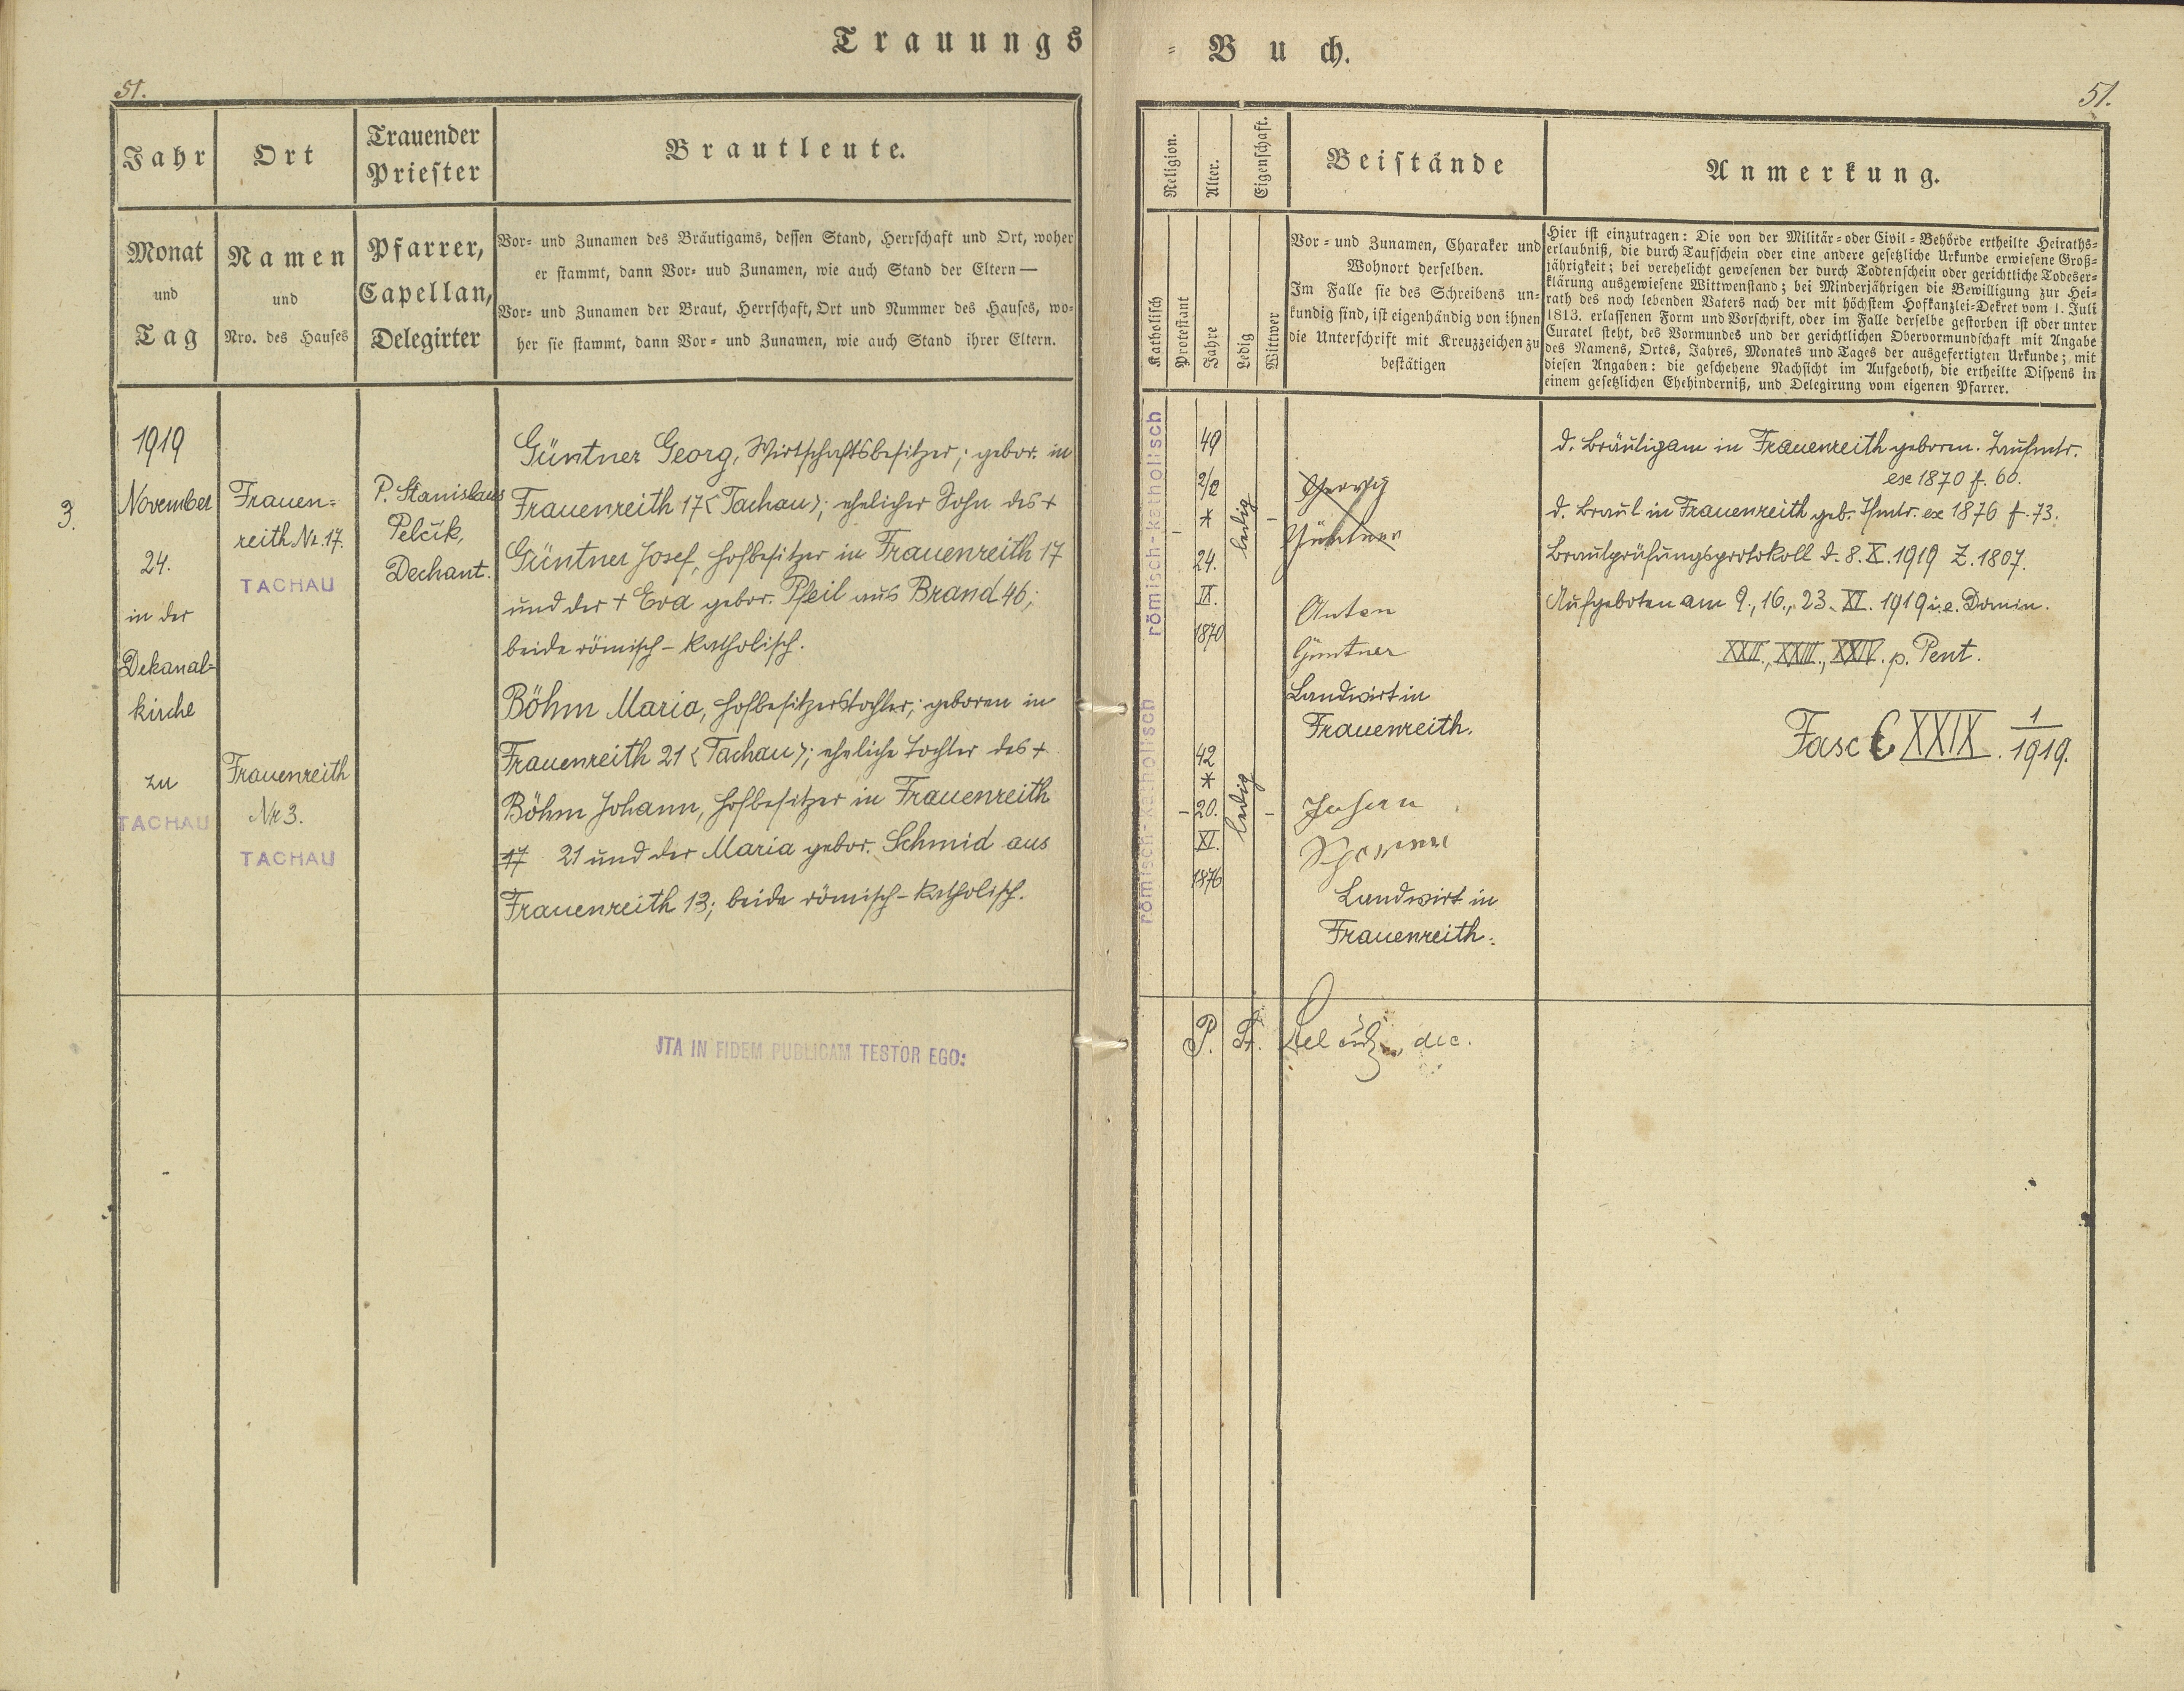 Trauungs
51.
Jahr
Ort
Trauender
Priester
Brautleute.
Monat
und
Tag
Namen
und
Nro. des Hauses
Pfarrer,
Capellan,
Delegirter
Vor- und Zunamen des Bräutigams, dessen Stand, Herrschaft und Ort, woher
er stammt, dann Vor- und Zunamen, wie auch Stand der Eltern —
Vor- und Zunamen der Braut, Herrschaft, Ort und Nummer des Hauses, wo-
her sie stammt, dann Vor- und Zunamen, wie auch Stand ihrer Eltern.
3.
1919
November
24.
in der
Dekanal-
kirche
zu
TACHAU
Frauen-
reith Nr. 17.
TACHAU
Frauenreith
Nr 3.
TACHAU
P. Stanislaus
Pelčík,
Dechant.
Güntner Georg, Wirtschaftsbesitzer; gebor. in
Frauenreith 17 < Tachau >; ehelicher Sohn des +
Güntner Josef, Hofbesitzer in Frauenreith 17
und der + Eva gebor. Pfeil aus Brand 46;
beide römisch-katholisch.
Böhm Maria, Hofbesitzerstochter; geboren in
Frauenreith 21 < Tachau >; eheliche Tochter des +
Böhm Johann, Hofbesitzer in Frauenreith
17 21 und der Maria gebor. Schmid aus
Frauenreith 13; beide römisch-katholisch.
JTA IN FIDEM PUBLICAM TESTOR EGO:
-Buch.
51.
Religion.
Alter.
Eigenschaft.
Beistände
Anmerkung.
Katholisch
Protestant
Jahre
Ledig
Wittwer
Vor- und Zunamen, Charakter und
Wohnort derselben.
Im Falle sie des Schreibens un-
kundig sind, ist eigenhändig von ihnen
die Unterschrift mit Kreuzzeichen zu
bestätigen
Hier ist einzutragen: Die von der Militär- oder Civil-Behörde ertheilte Heiraths-
erlaubniß, die durch Taufschein oder eine andere gesetzliche Urkunde erwiesene Groß-
jährigkeit; bei verehelicht gewesenen der durch Todtenschein oder gerichtliche Todeser-
klärung ausgewiesene Wittwenstand; bei Minderjährigen die Bewilligung zur Hei-
rath des noch lebenden Vaters nach der mit höchstem Hofkanzlei-Dekret vom 1. Juli
1813. erlassenen Form und Vorschrift, oder im Falle derselbe gestorben ist oder unter
Curatel steht, des Vormundes und der gerichtlichen Obervormundschaft mit Angabe
des Namens, Ortes, Jahres, Monates und Tages der ausgefertigten Urkunde; mit
diesen Angaben: die geschehene Nachsicht im Aufgeboth, die ertheilte Dispens in
einem gesetzlichen Ehehinderniß, und Delegirung vom eigenen Pfarrer.
römisch-katholisch
49
2/12
*
24.
IX.
1870
ledig
Georg
Güntner
Anton
Güntner
Landwirt in
Frauenreith.
römisch-katholisch
42
*
20.
XI.
1876
ledig
Johann
Landwirt in
Frauenreith.
d. Bräutigam in Frauenreith geboren. Taufmtr.
ex 1870 f. 60.
d. Braut in Frauenreith geb. Tfmtr. ex 1876 f. 73.
Brautprüfungsprotokoll d. 8. X. 1919 Z. 1807.
Aufgeboten am 9., 16., 23. XI. 1919 i. e. Domin.
XXII., XXIII., XXIV. p. Pent.
Fasc C XXIX. 1/1919.
P. St. Pelčík, dec.